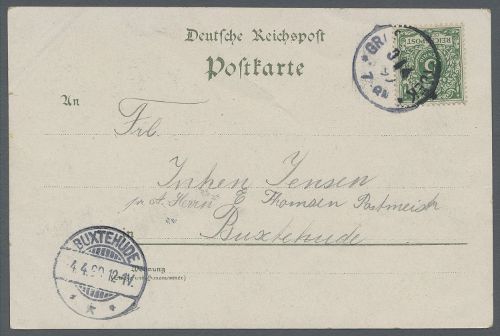 Deutsche Reichspost
Postkarte
An
Frl.
Inken Jensen
pr. A. Herrn E Thomsen Postmeistr
in Buxtehude
Wohnung
BUXTEHUDE
4.4.90.12-1V.
REICHSPOST
5